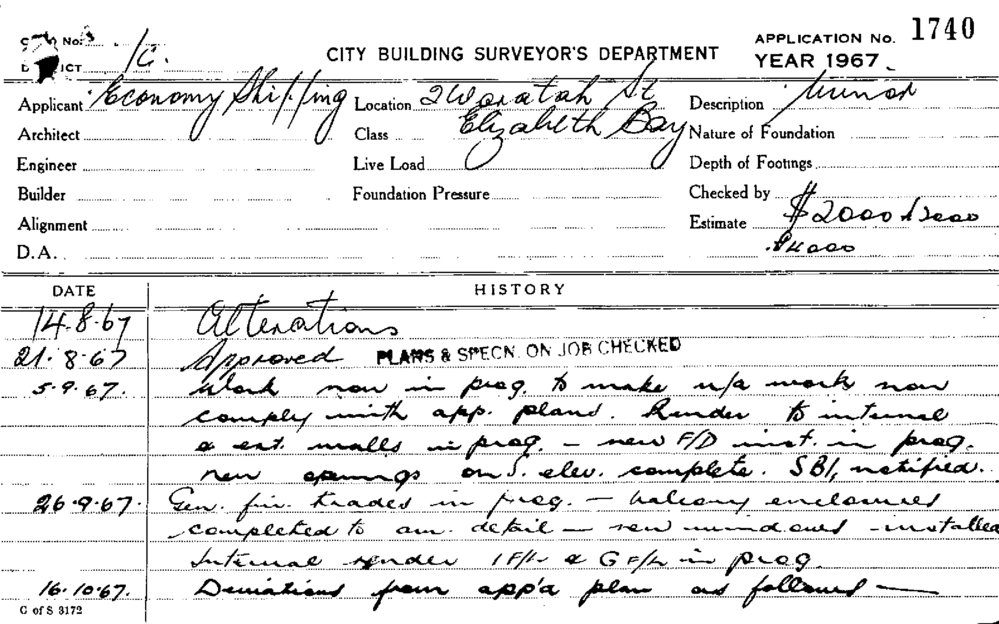 CITY BUILDING SURVEYOR'S DEPARTMENT
APPLICATION No. 1740
YEAR 1967
Applicant Economy Shipping Location 2 Waratah St Description Minor
Architect Class Elizabeth Bay Nature of Foundation
Engineer Live Load Depth of Footings
Builder Foundation Pressure Checked by
Alignment Estimate $2000
D.A. $4000
DATE HISTORY
14.8.67 Alterations
21.8.67 Approved PLANS & SPECN. ON JOB CHECKED
5.9.67. Work now in prog. to make u/a work now
comply with app. plans. Render to internal
& ext. walls in prog. — new F/D inst. in prog.
new openings on S. elev. complete. SBI, notified.
26.9.67. Gen. fin. trades in prog. — balcony enclosures
completed to am. detail — new windows installed
Internal render 1 F/L & G F/L in prog.
16.10.67. Deviations from app'd plan as follows —
G of S 3172